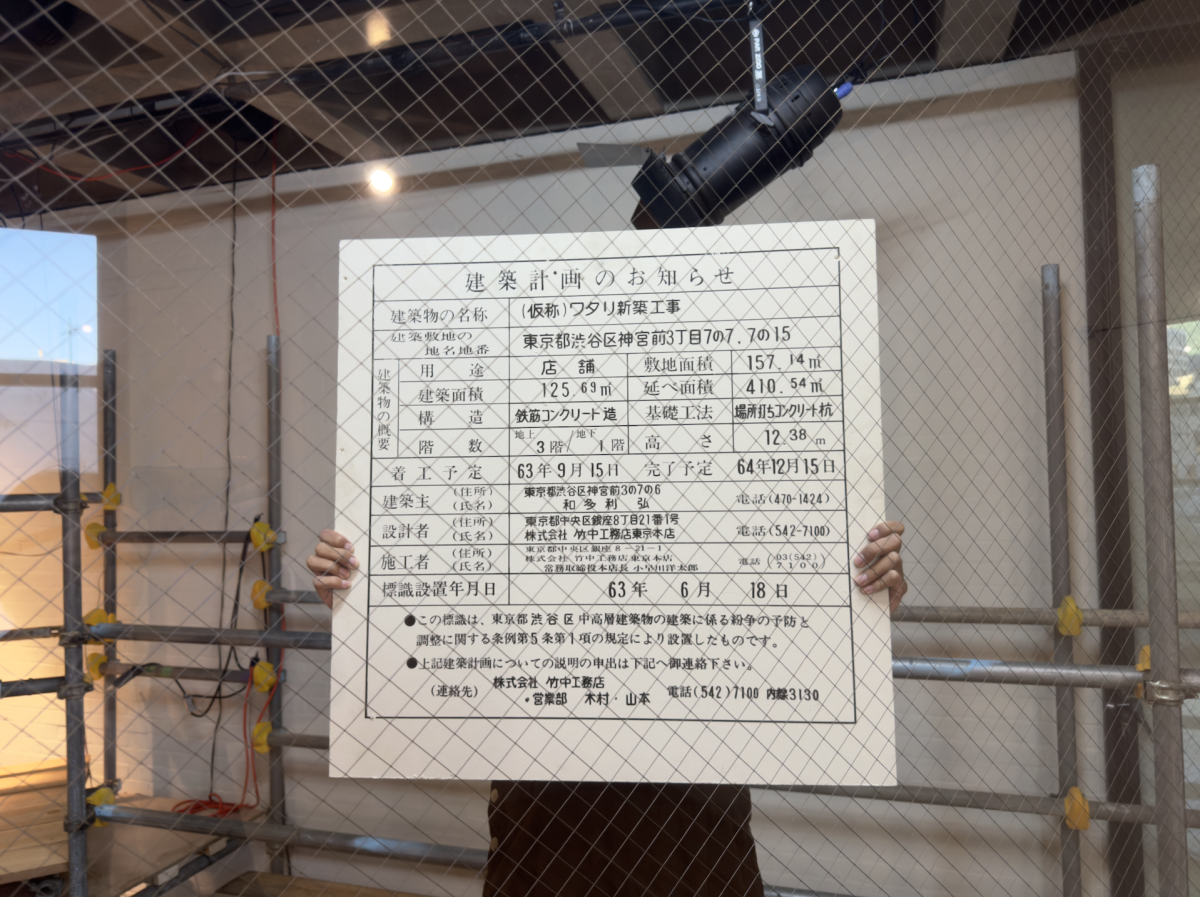 建築計画のお知らせ
建築物の名称 (仮称)ワタリ新築工事
建築敷地の地名地番 東京都渋谷区神宮前3丁目7の7.7の15
建築物の概要
用途 店舗 敷地面積 157.14㎡
建築面積 125.69㎡ 延べ面積 410.54㎡
構造 鉄筋コンクリート造 基礎工法 場所打ちコンクリート杭
階数 地上3階/地下1階 高さ 12.38m
着工予定 63年9月15日 完了予定 64年12月15日
建築主 (住所) 東京都渋谷区神宮前3の7の6
(氏名) 和多利 弘 電話(470-1424)
設計者 (住所) 東京都中央区銀座8丁目21番1号
(氏名) 株式会社 竹中工務店東京本店 電話(542-7100)
施工者 (住所) 東京都中央区銀座8-21-1
(氏名) 株式会社 竹中工務店 東京本店
常務取締役本店長 小早川洋太郎 電話(03(542)7100)
標識設置年月日 63年 6月 18日
●この標識は、東京都渋谷区中高層建築物の建築に係る紛争の予防と
調整に関する条例第5条第1項の規定により設置したものです。
●上記建築計画についての説明の申出は下記へ御連絡下さい。
(連絡先) 株式会社 竹中工務店
・営業部 木村・山本 電話(542)7100 内線3130